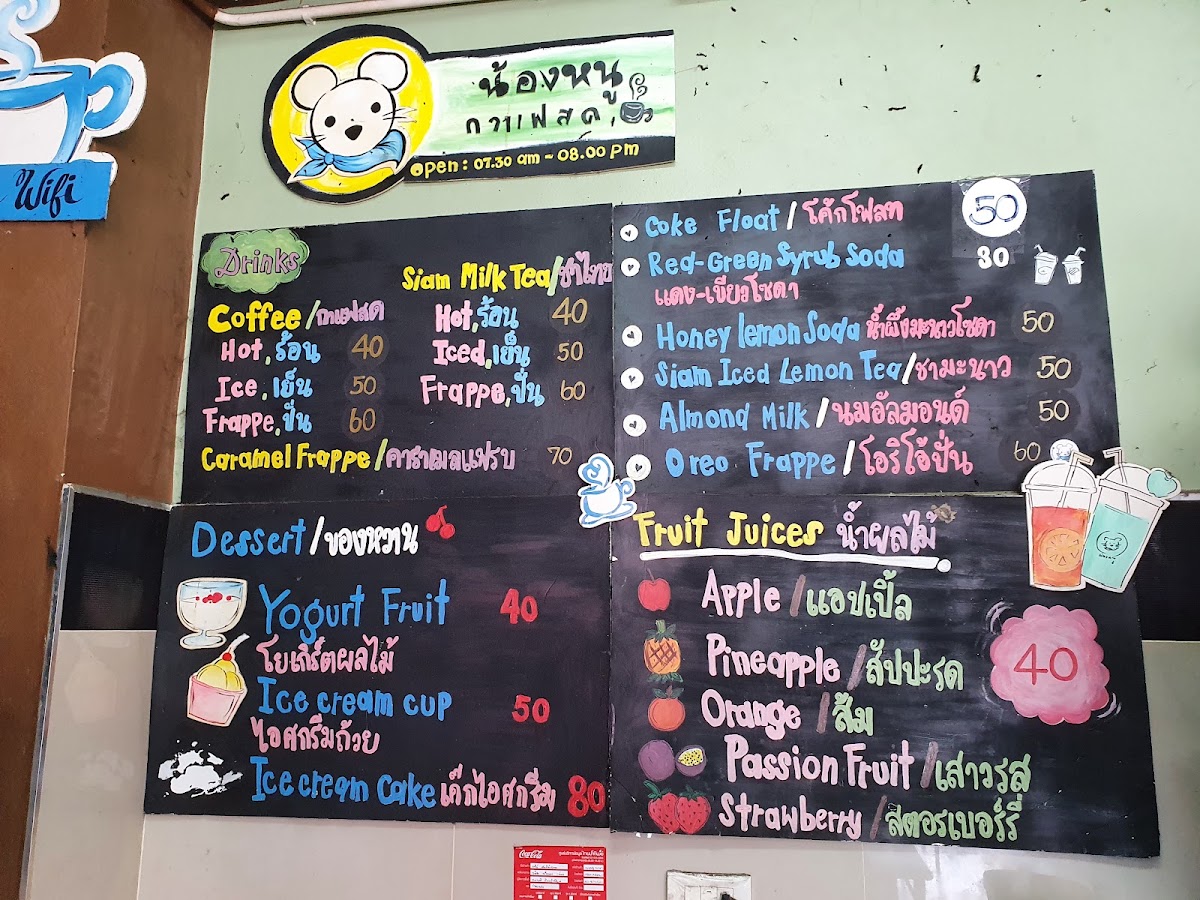 Wifi
น้องหนู
กาแฟสด
open : 07.30 am ~ 08.00 pm
Drinks
Coffee/กาแฟสด
Hot,ร้อน 40
Ice,เย็น 50
Frappe,ปั่น 60
Caramel Frappe/คาราเมลแฟรบ 70
Siam Milk Tea/ชาไทย
Hot,ร้อน 40
Iced,เย็น 50
Frappe,ปั่น 60
Coke Float/โค้กโฟลท 50
Red-Green Syrub Soda 30
แดง-เขียวโซดา
Honey lemon Soda น้ำผึ้งมะนาวโซดา 50
Siam Iced Lemon Tea/ชามะนาว 50
Almond Milk/นมอัลมอนด์ 50
Oreo Frappe/โอริโอ้ปั่น 60
Dessert/ของหวาน
Yogurt Fruit 40
โยเกิร์ตผลไม้
Ice cream cup 50
ไอศกรีมถ้วย
Ice cream cake เค๊กไอศกรีม 80
Fruit Juices น้ำผลไม้
Apple/แอปเปิ้ล
Pineapple/สัปปะรด
Orange/ส้ม
Passion Fruit/เสาวรส
Strawberry/สตอรเบอร์รี่
40
Coca-Cola